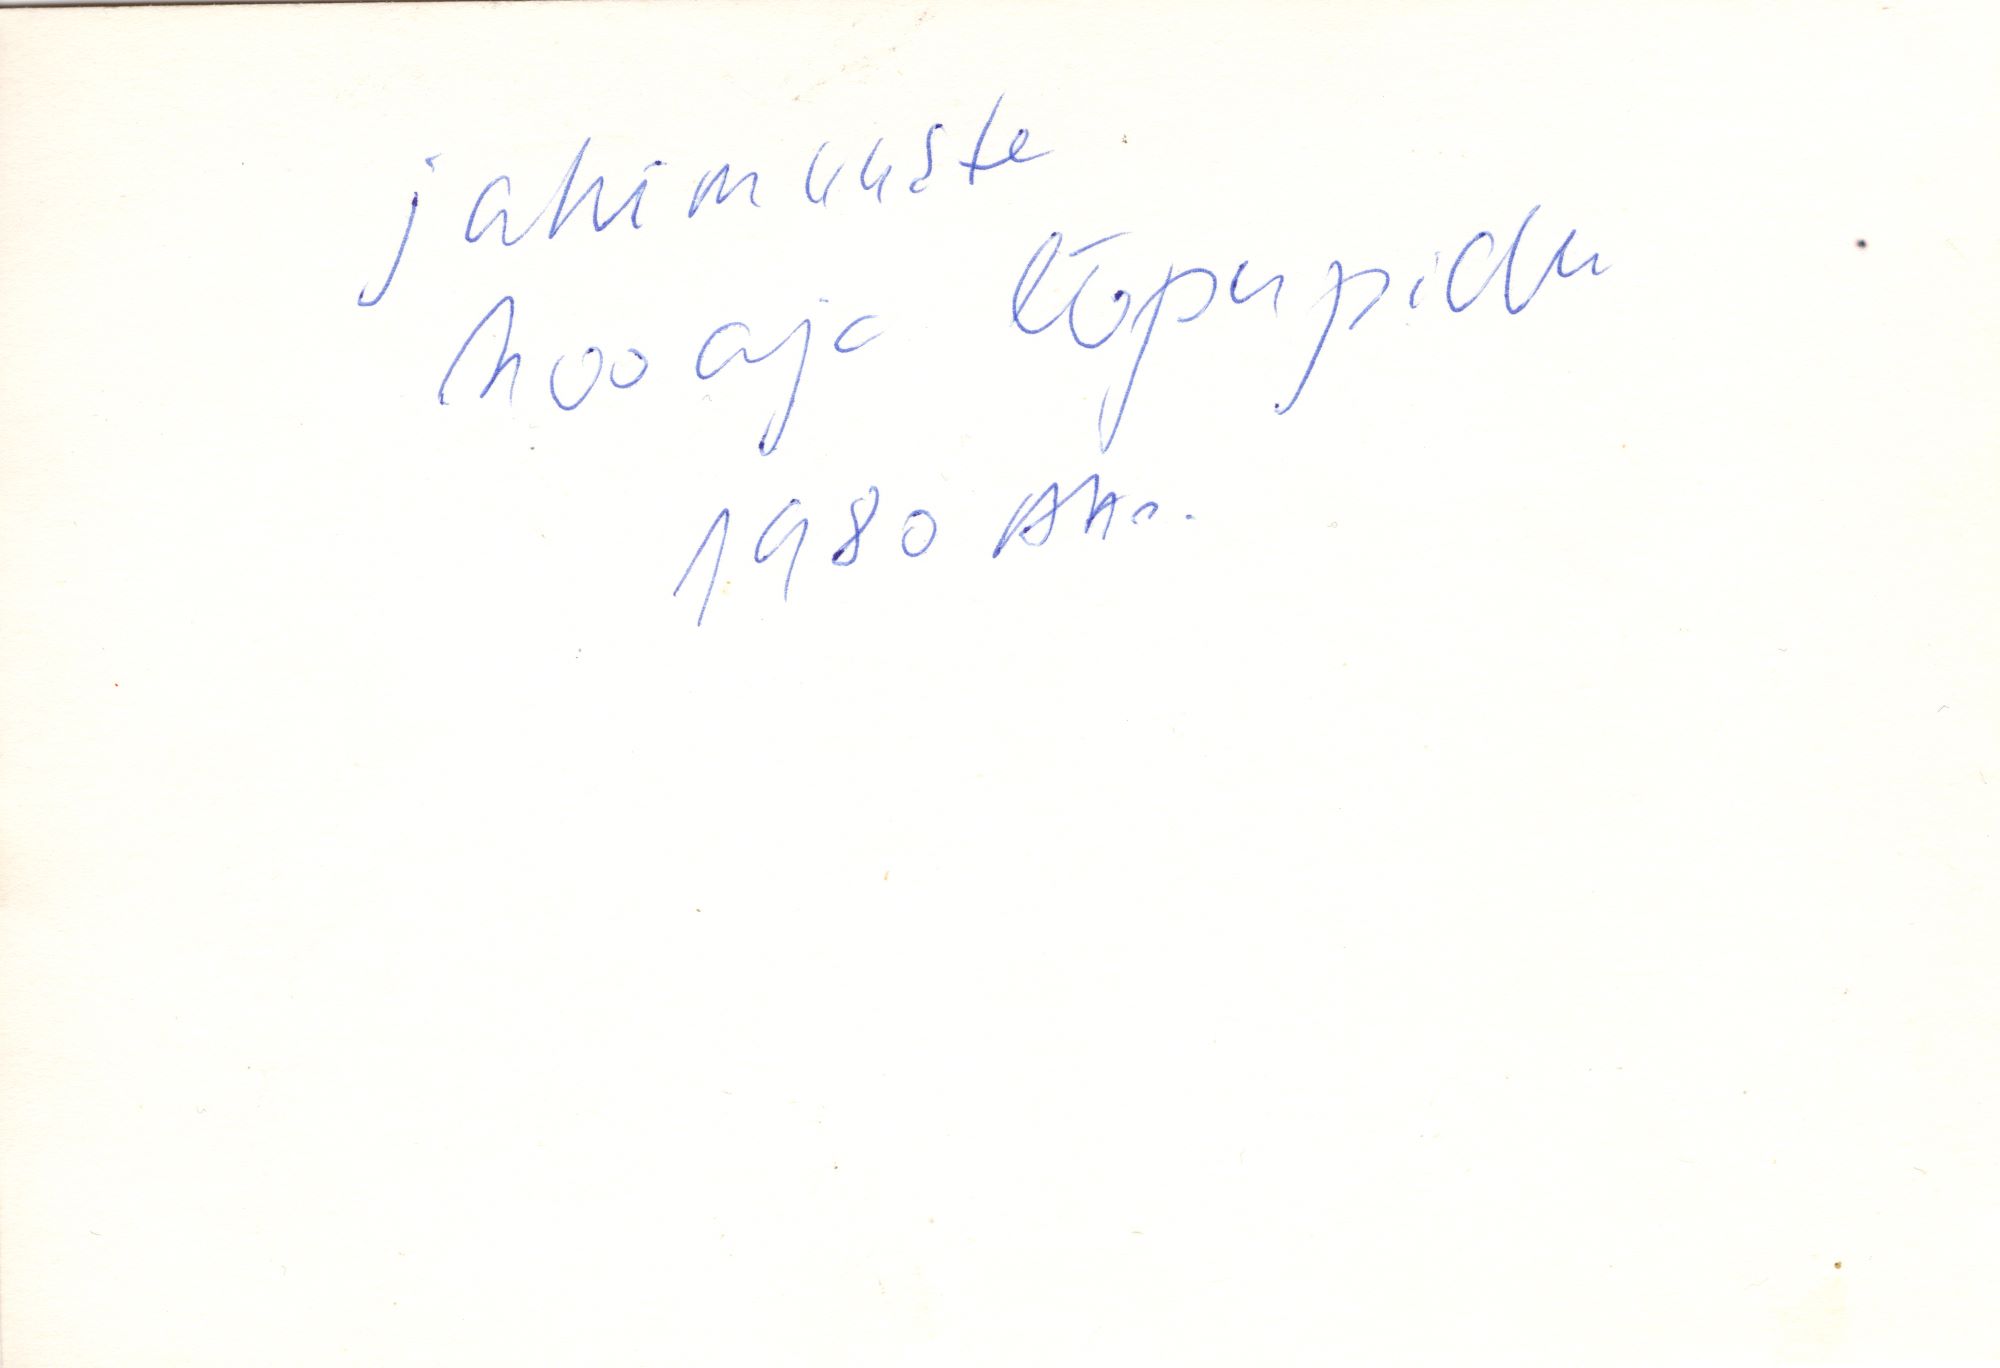 jahimuuste
hooaja lõpupidu
1980